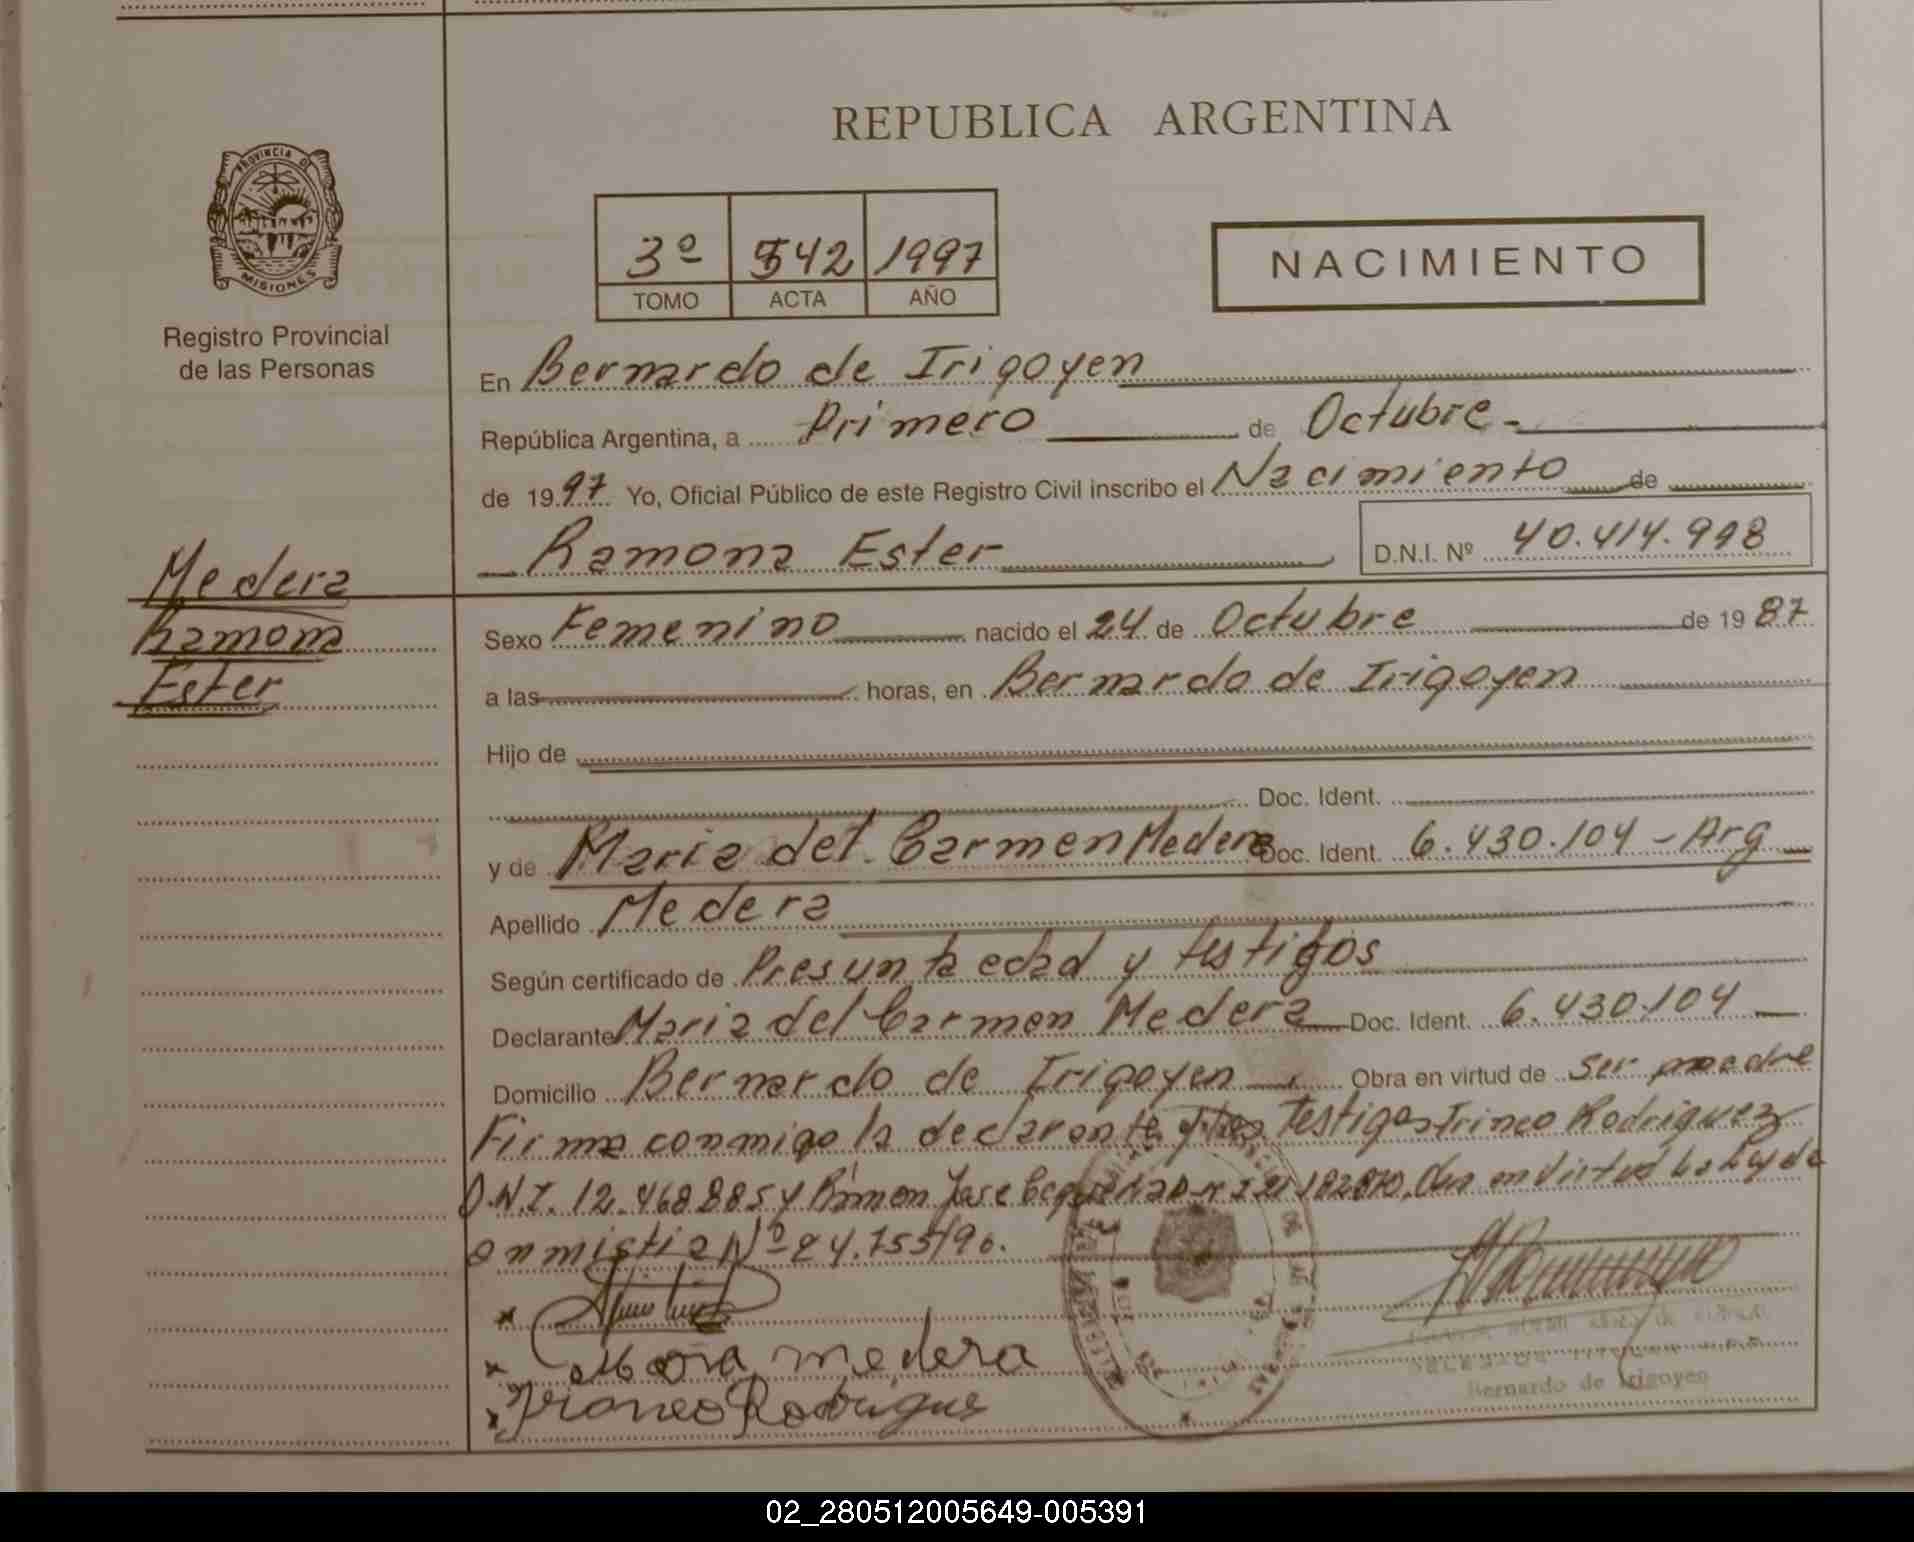 REPUBLICA ARGENTINA
PROVINCIA DE
MISIONES
Registro Provincial
de las Personas
3º 542 1997
TOMO ACTA AÑO
NACIMIENTO
En Bernardo de Irigoyen
República Argentina, a Primero de Octubre.
de 1997 Yo, Oficial Público de este Registro Civil inscribo el Nacimiento de
Ramona Ester D.N.I. Nº 40.414.998
Medera
Ramona
Ester
Sexo Femenino nacido el 24 de Octubre de 1987
a las horas, en Bernardo de Irigoyen
Hijo de
Doc. Ident.
y de Maria del Carmen Medera Doc. Ident. 6.430.104 - Arg
Apellido Medera
Según certificado de Presunta edad y testigos
Declarante Maria del Carmen Medera Doc. Ident. 6.430.104
Domicilio Bernardo de Irigoyen Obra en virtud de Ser madre
Firma conmigo la declarante y los Testigos Irineo Rodriguez
D.N.I. 12.468885 y Ramon Jose en virtud la Ley de
anmistia Nº 24.755/96.
Maria medera
Irineo Rodrigues
Bernardo de Irigoyen
02_280512005649-005391